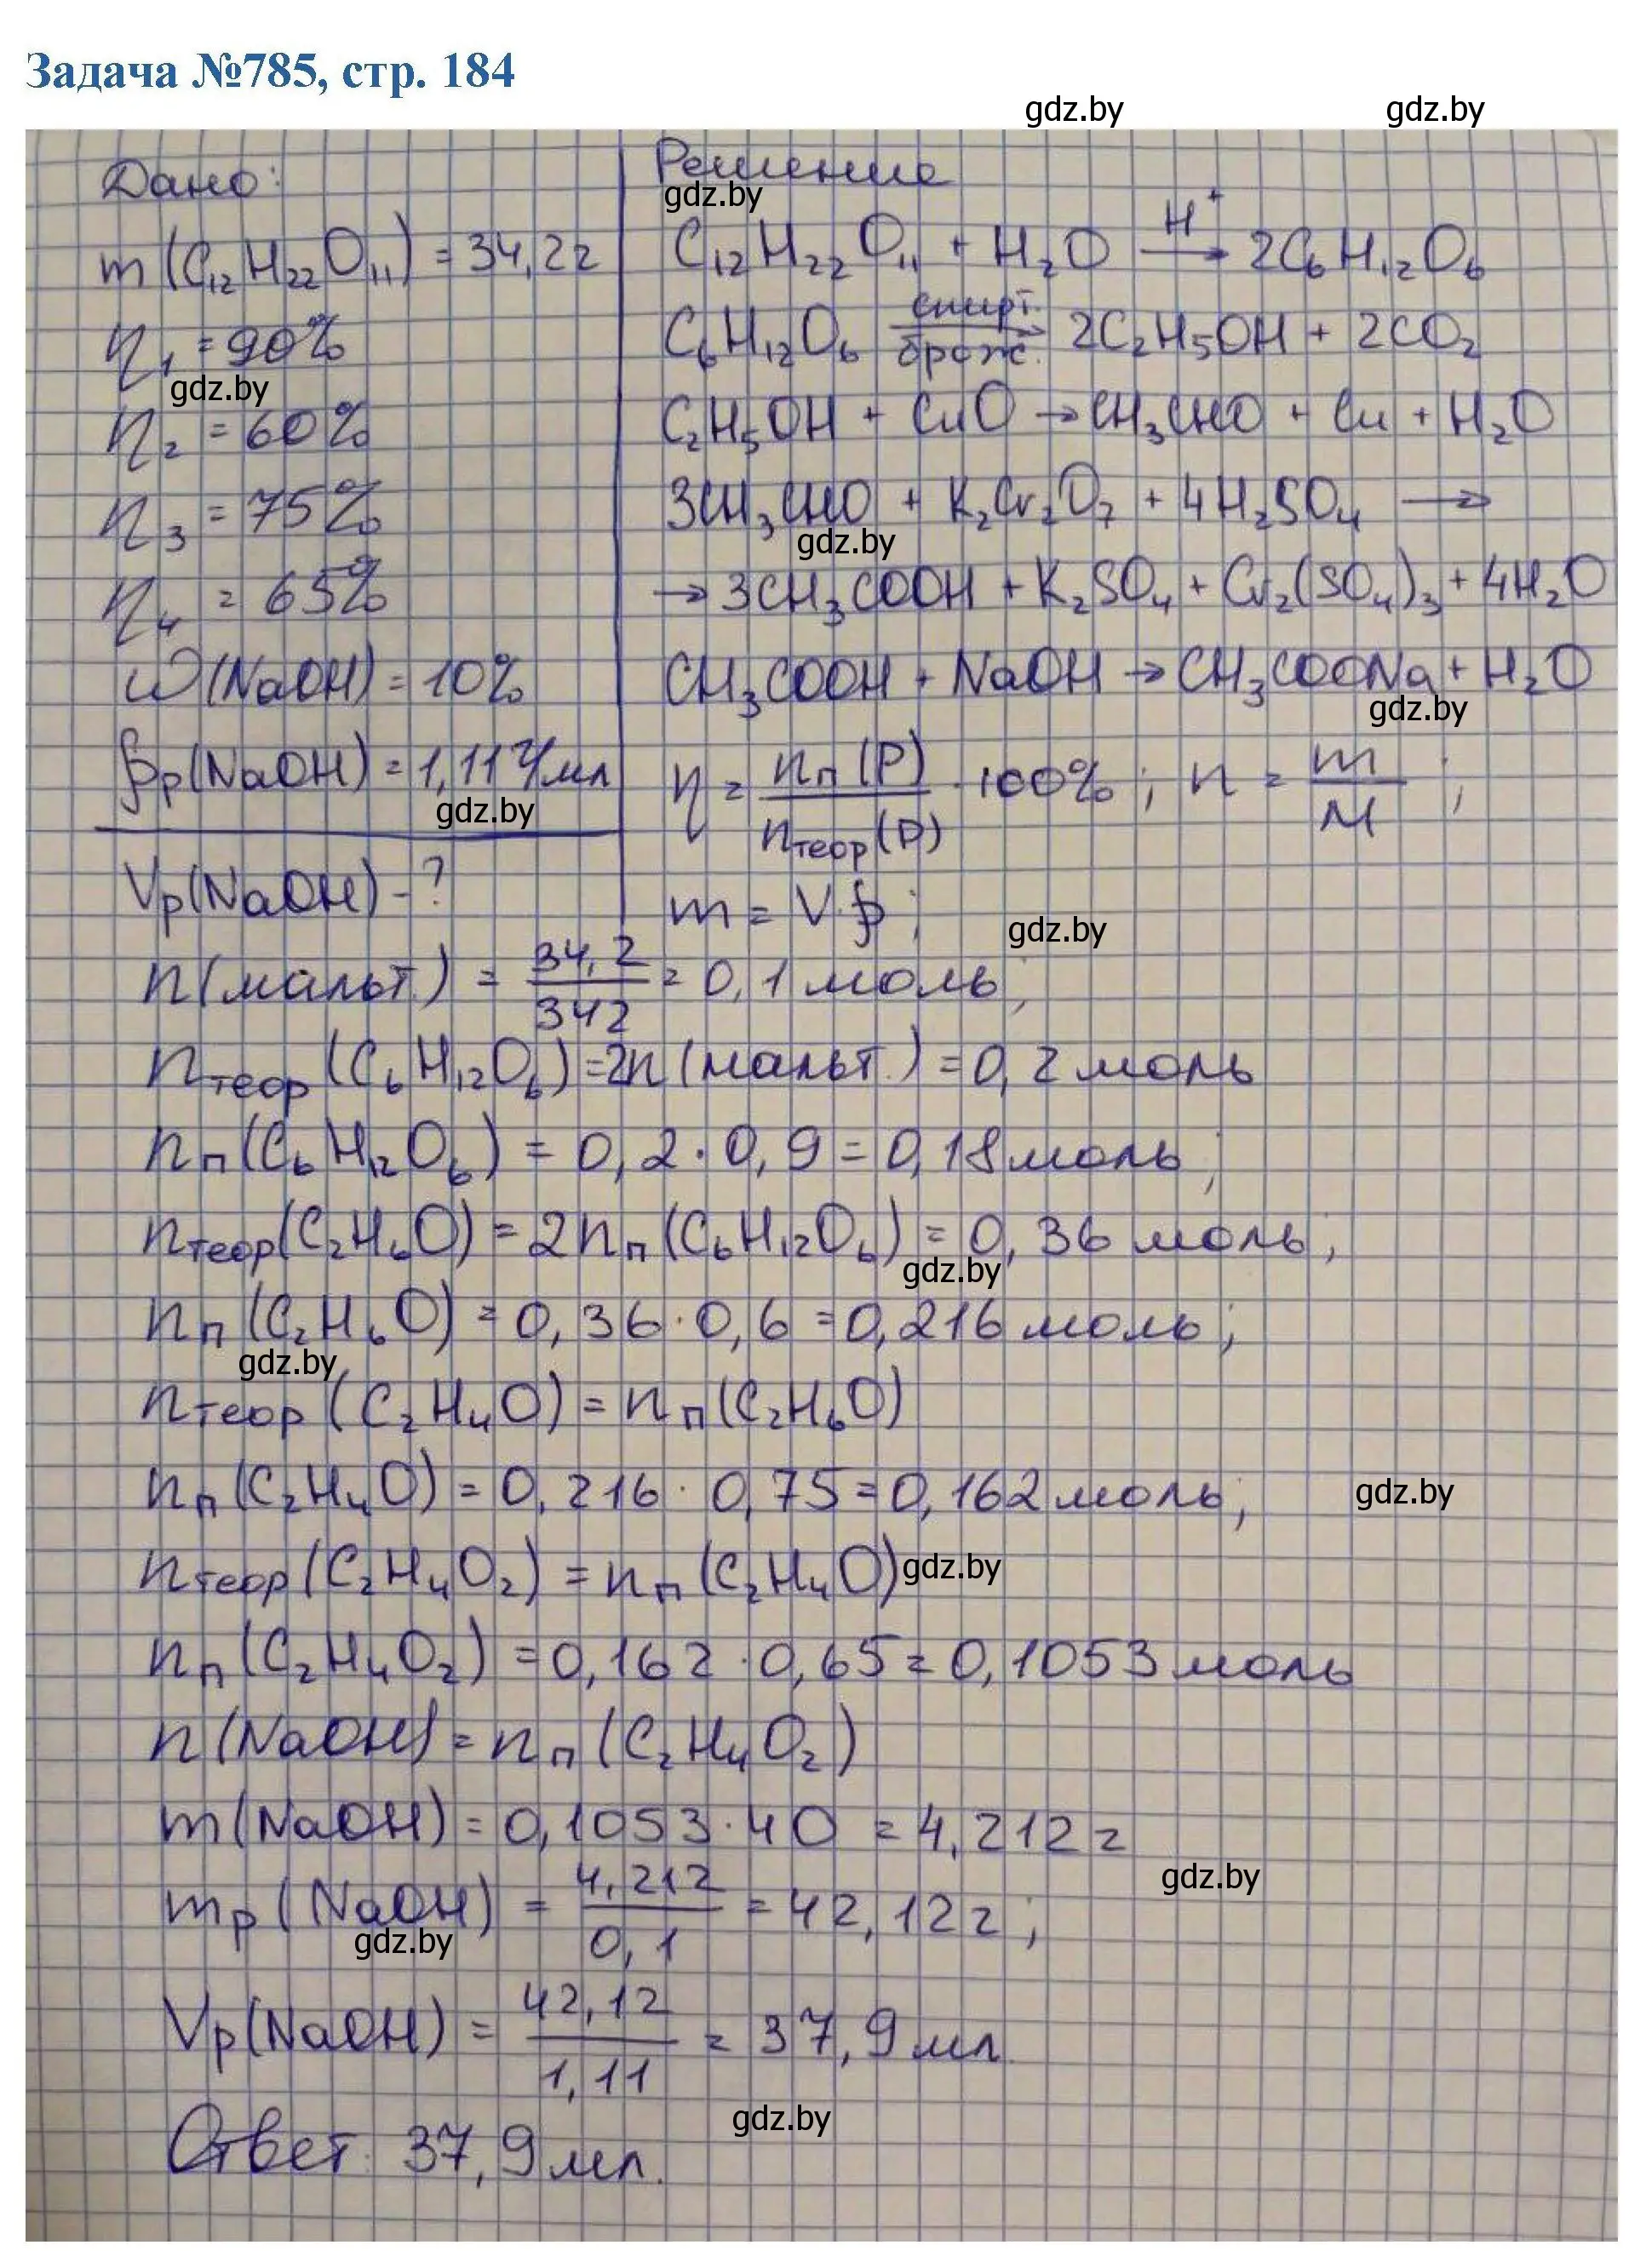 Задача №785, стр. 184
gdz.by gdz.by
Дано:
m(C₁₂H₂₂O₁₁) = 34,2г
η₁ = 90%
gdz.by
η₂ = 60%
η₃ = 75%
η₄ = 65%
ω(NaOH) = 10%
ρр(NaOH) = 1,11 г/мл
gdz.by
Vр(NaOH) - ?
Решение
gdz.by
C₁₂H₂₂O₁₁ + H₂O —H⁺→ 2C₆H₁₂O₆
C₆H₁₂O₆ —спирт. брож.→ 2C₂H₅OH + 2CO₂
C₂H₅OH + CuO → CH₃CHO + Cu + H₂O
3CH₃CHO + K₂Cr₂O₇ + 4H₂SO₄ →
gdz.by
→ 3CH₃COOH + K₂SO₄ + Cr₂(SO₄)₃ + 4H₂O
CH₃COOH + NaOH → CH₃COONa + H₂O
gdz.by
η = nп(P) / nтеор(P) · 100% ; n = m / M ;
m = V · ρ ;
gdz.by
n(мальт.) = 34,2 / 342 = 0,1 моль;
nтеор(C₆H₁₂O₆) = 2n(мальт.) = 0,2 моль
nп(C₆H₁₂O₆) = 0,2 · 0,9 = 0,18 моль;
nтеор(C₂H₆O) = 2nп(C₆H₁₂O₆) = 0,36 моль;
gdz.by
nп(C₂H₆O) = 0,36 · 0,6 = 0,216 моль;
gdz.by
nтеор(C₂H₄O) = nп(C₂H₆O)
nп(C₂H₄O) = 0,216 · 0,75 = 0,162 моль;
gdz.by
nтеор(C₂H₄O₂) = nп(C₂H₄O)
gdz.by
nп(C₂H₄O₂) = 0,162 · 0,65 = 0,1053 моль
n(NaOH) = nп(C₂H₄O₂)
m(NaOH) = 0,1053 · 40 = 4,212 г
gdz.by
mр(NaOH) = 4,212 / 0,1 = 42,12 г;
gdz.by
Vр(NaOH) = 42,12 / 1,11 = 37,9 мл.
gdz.by
Ответ: 37,9 мл.